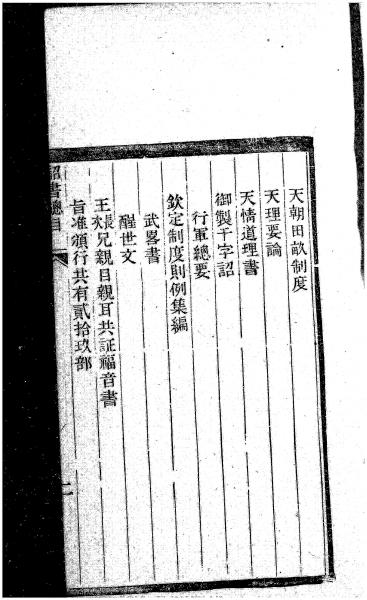 天朝田畝制度
天理要論
天情道理書
御製千字詔
行軍總要
欽定制度則例集編
武畧書
醒世文
王長次兄親目親耳共証福音書
旨准頒行共有貳拾玖部
詔書總目
二